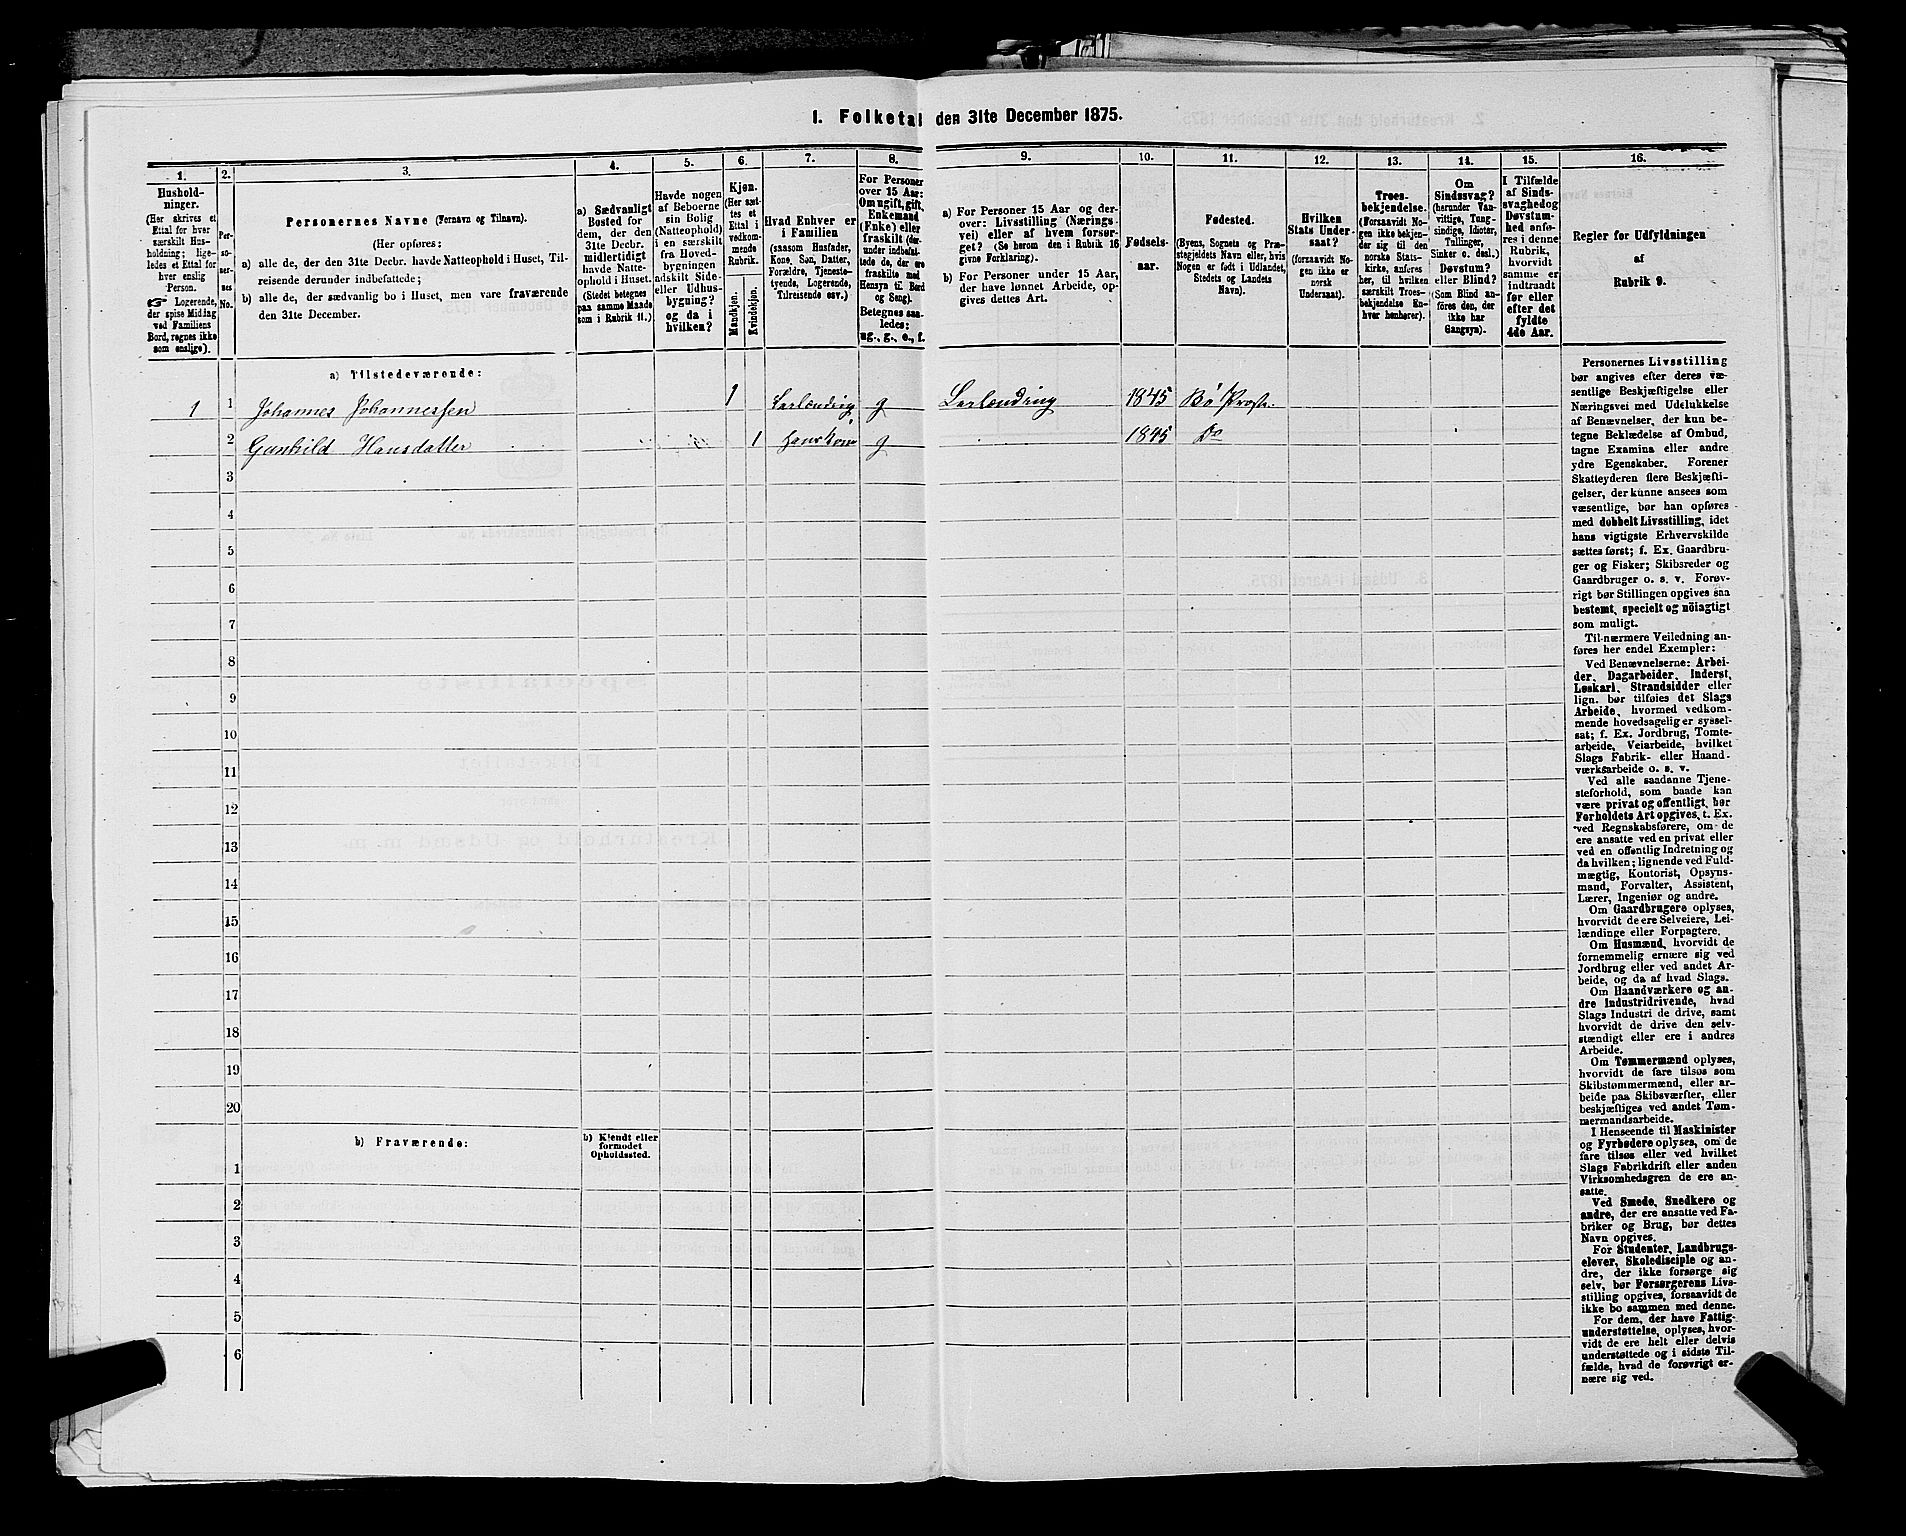 1. Folketal den 31te December 1875.
1.
Hushold-
ninger.
(Her skrives et
Ettal for hver
særskilt Hus-
holdning; lige-
ledes et Ettal for
hver enslig
Person.
☞ Logerende,
der spise Middag
ved Familiens
Bord, regnes ikke
som enslige).
2.
Per-
so-
ner-
nes
No.
3.
Personernes Navne (Fornavn og Tilnavn).
(Her opføres:
a) alle de, der den 31te Decbr. havde Natteophold i Huset, Til-
reisende derunder indbefattede;
b) alle de, der sædvanlig bo i Huset, men vare fraværende
den 31te December.
4.
a) Sædvanligt
Bosted for
dem, der den
31te Decbr.
midlertidigt
havde Natte-
ophold i Huset.
(Stedet betegnes
paa samme Maade
som i Rubrik 11.)
5.
Havde nogen
af Beboerne
sin Bolig
(Natteophold)
i en særskilt
fra Hoved-
bygningen
adskilt Side-
eller Udhus-
bygning?
og da i
hvilken?
6.
Kjøn.
(Her sæt-
tes et
Ettal i
vedkom-
mende
Rubrik.
Mandkjøn.
Kvindekjøn.
7.
Hvad Enhver er
i Familien
(saasom Husfader,
Kone, Søn, Datter,
Forældre, Tjeneste-
tyende, Logerende,
Tilreisende osv.)
8.
For Personer
over 15 Aar:
Om ugift, gift,
Enkemand
(Enke) eller
fraskilt (der-
under indbefat-
tede de, der ere
fraskilte med
Hensyn til Bord
og Seng).
Betegnes saa-
ledes:
ug., g., e., f.
9.
a) For Personer 15 Aar og der-
over: Livsstilling (Nærings-
vei) eller af hvem forsør-
get? (Se herom den i Rubrik 16
givne Forklaring).
b) For Personer under 15 Aar,
der have lønnet Arbeide, op-
gives dettes Art.
10.
Fødsels-
aar.
11.
Fødested.
(Byens, Sognets og Præ-
stegjeldets Navn eller, hvis
Nogen er født i Udlandet,
Stedets og Landets
Navn).
12.
Hvilken
Stats Under-
saat?
(forsaavidt No-
gen ikke er
norsk
Undersaat).
13.
Troes-
bekjendelse.
(Forsaavidt No-
gen ikke bekjen-
der sig til den
norske Stats-
kirke, anføres
her, til hvilken
særskilt Troes-
bekjendelse En-
hver henhører).
14.
Om
Sindssvag?
(herunder Van-
vittige, Tung-
sindige, Idioter,
Tullinger,
Sinker o. desl.)
Døvstum?
eller Blind?
(Som Blind an-
føres den, der
ikke har
Gangsyn).
15.
I Tilfælde
af Sinds-
svaghedog
Døvstum-
hed anfø-
res i denne
Rubrik,
hvorvidt
samme er
indtraadt
før eller
efter det
fyldte
4de Aar.
16.
Regler for Udfyldningen
af
Rubrik 9.
a) Tilstedeværende:
1 1 Johannes Johannessen 1 g 1845 Bø
2 Gunhild Hansdatter 1 g 1845 Do
3
4
5
6
7
8
9
10
11
12
13
14
15
16
17
18
19
20
b) Fraværende:
b) Kjendt eller
formodet
Opholdssted.
1
2
3
4
5
6
Personernes Livsstilling
bør angives efter deres væ-
sentlige Beskjæftigelse eller
Næringsvei med Udelukkelse
af Benævnelser, der kun be-
tegne Beklædelse af Ombud,
tagne Examina eller andre
ydre Egenskaber. Forener
Skatteyderen flere Beskjæfti-
gelser, der kunne ansees som
væsentlige, bør han opføres
med dobbelt Livsstilling, idet
hans vigtigste Erhvervskilde
sættes først; f. Ex. Gaardbru-
ger og Fisker; Skibsreder og
Gaardbruger o. s. v. Forøv-
rigt bør Stillingen opgives saa
bestemt, specielt og nöiagtigt
som muligt.
Til nærmere Veiledning an-
føres her endel Exempler:
Ved Benævnelserne: Arbei-
der, Dagarbeider, Inderst,
Løskarl, Strandsidder eller
lign. bør tilføies det Slags
Arbeide, hvormed vedkom-
mende hovedsagelig er syssel-
sat; f. Ex. Jordbrug, Tomte-
arbeide, Veiarbeide, hvilket
Slags Fabrik- eller Haand-
værksarbeide o. s. v.
Ved alle saadanne Tjene-
steforhold, som baade kan
være privat og offentligt, bør
Forholdets Art opgives, t. Ex.
ved Regnskabsførere, om de
ere ansatte ved en privat eller
ved en offentlig Indretning og
da hvilken; lignende ved Fuld-
mægtig, Kontorist, Opsyns-
mand, Forvalter, Assistent,
Lærer, Ingeniør og andre.
Om Gaardbrugere oplyses,
hvorvidt de ere Selveiere, Lei-
lændinge eller Forpagtere.
Om Husmænd, hvorvidt de
fornemmelig ernære sig ved
Jordbrug eller ved andet Ar-
beide, og da af hvad Slags.
Om Haandværkere og an-
dre Industridrivende, hvad
Slags Industri de drive, samt
hvorvidt de drive den selv-
stændigt eller ere i andres
Arbeide.
Om Tømmermænd oplyses,
hvorvidt de fare tilsøs som
Skibstømmermænd, eller ar-
beide paa Skibsværfter, eller
beskjæftiges ved andet Tøm-
mermandsarbeide.
I Henseende til Maskinister
og Fyrbødere oplyses, om de
fare tilsøs eller ved hvilket
Slags Fabrikdrift eller anden
Virksomhedsgren de ere an-
satte.
Ved Smede, Snedkere og
andre, der ere ansatte ved Fa-
briker og Brug, bør dettes
Navn opgives.
For Studenter, Landbrugs-
elever, Skoledisciple og an-
dre, der ikke forsørge sig
selv, bør Forsørgerens Livs-
stilling opgives, forsaavidt de
ikke bo sammen med denne.
For dem, der have Fattig-
understøttelse, oplyses, hvor-
vidt de ere helt eller delvis
understøttede og i sidste Til-
fælde, hvad de forøvrigt er-
nære sig ved.